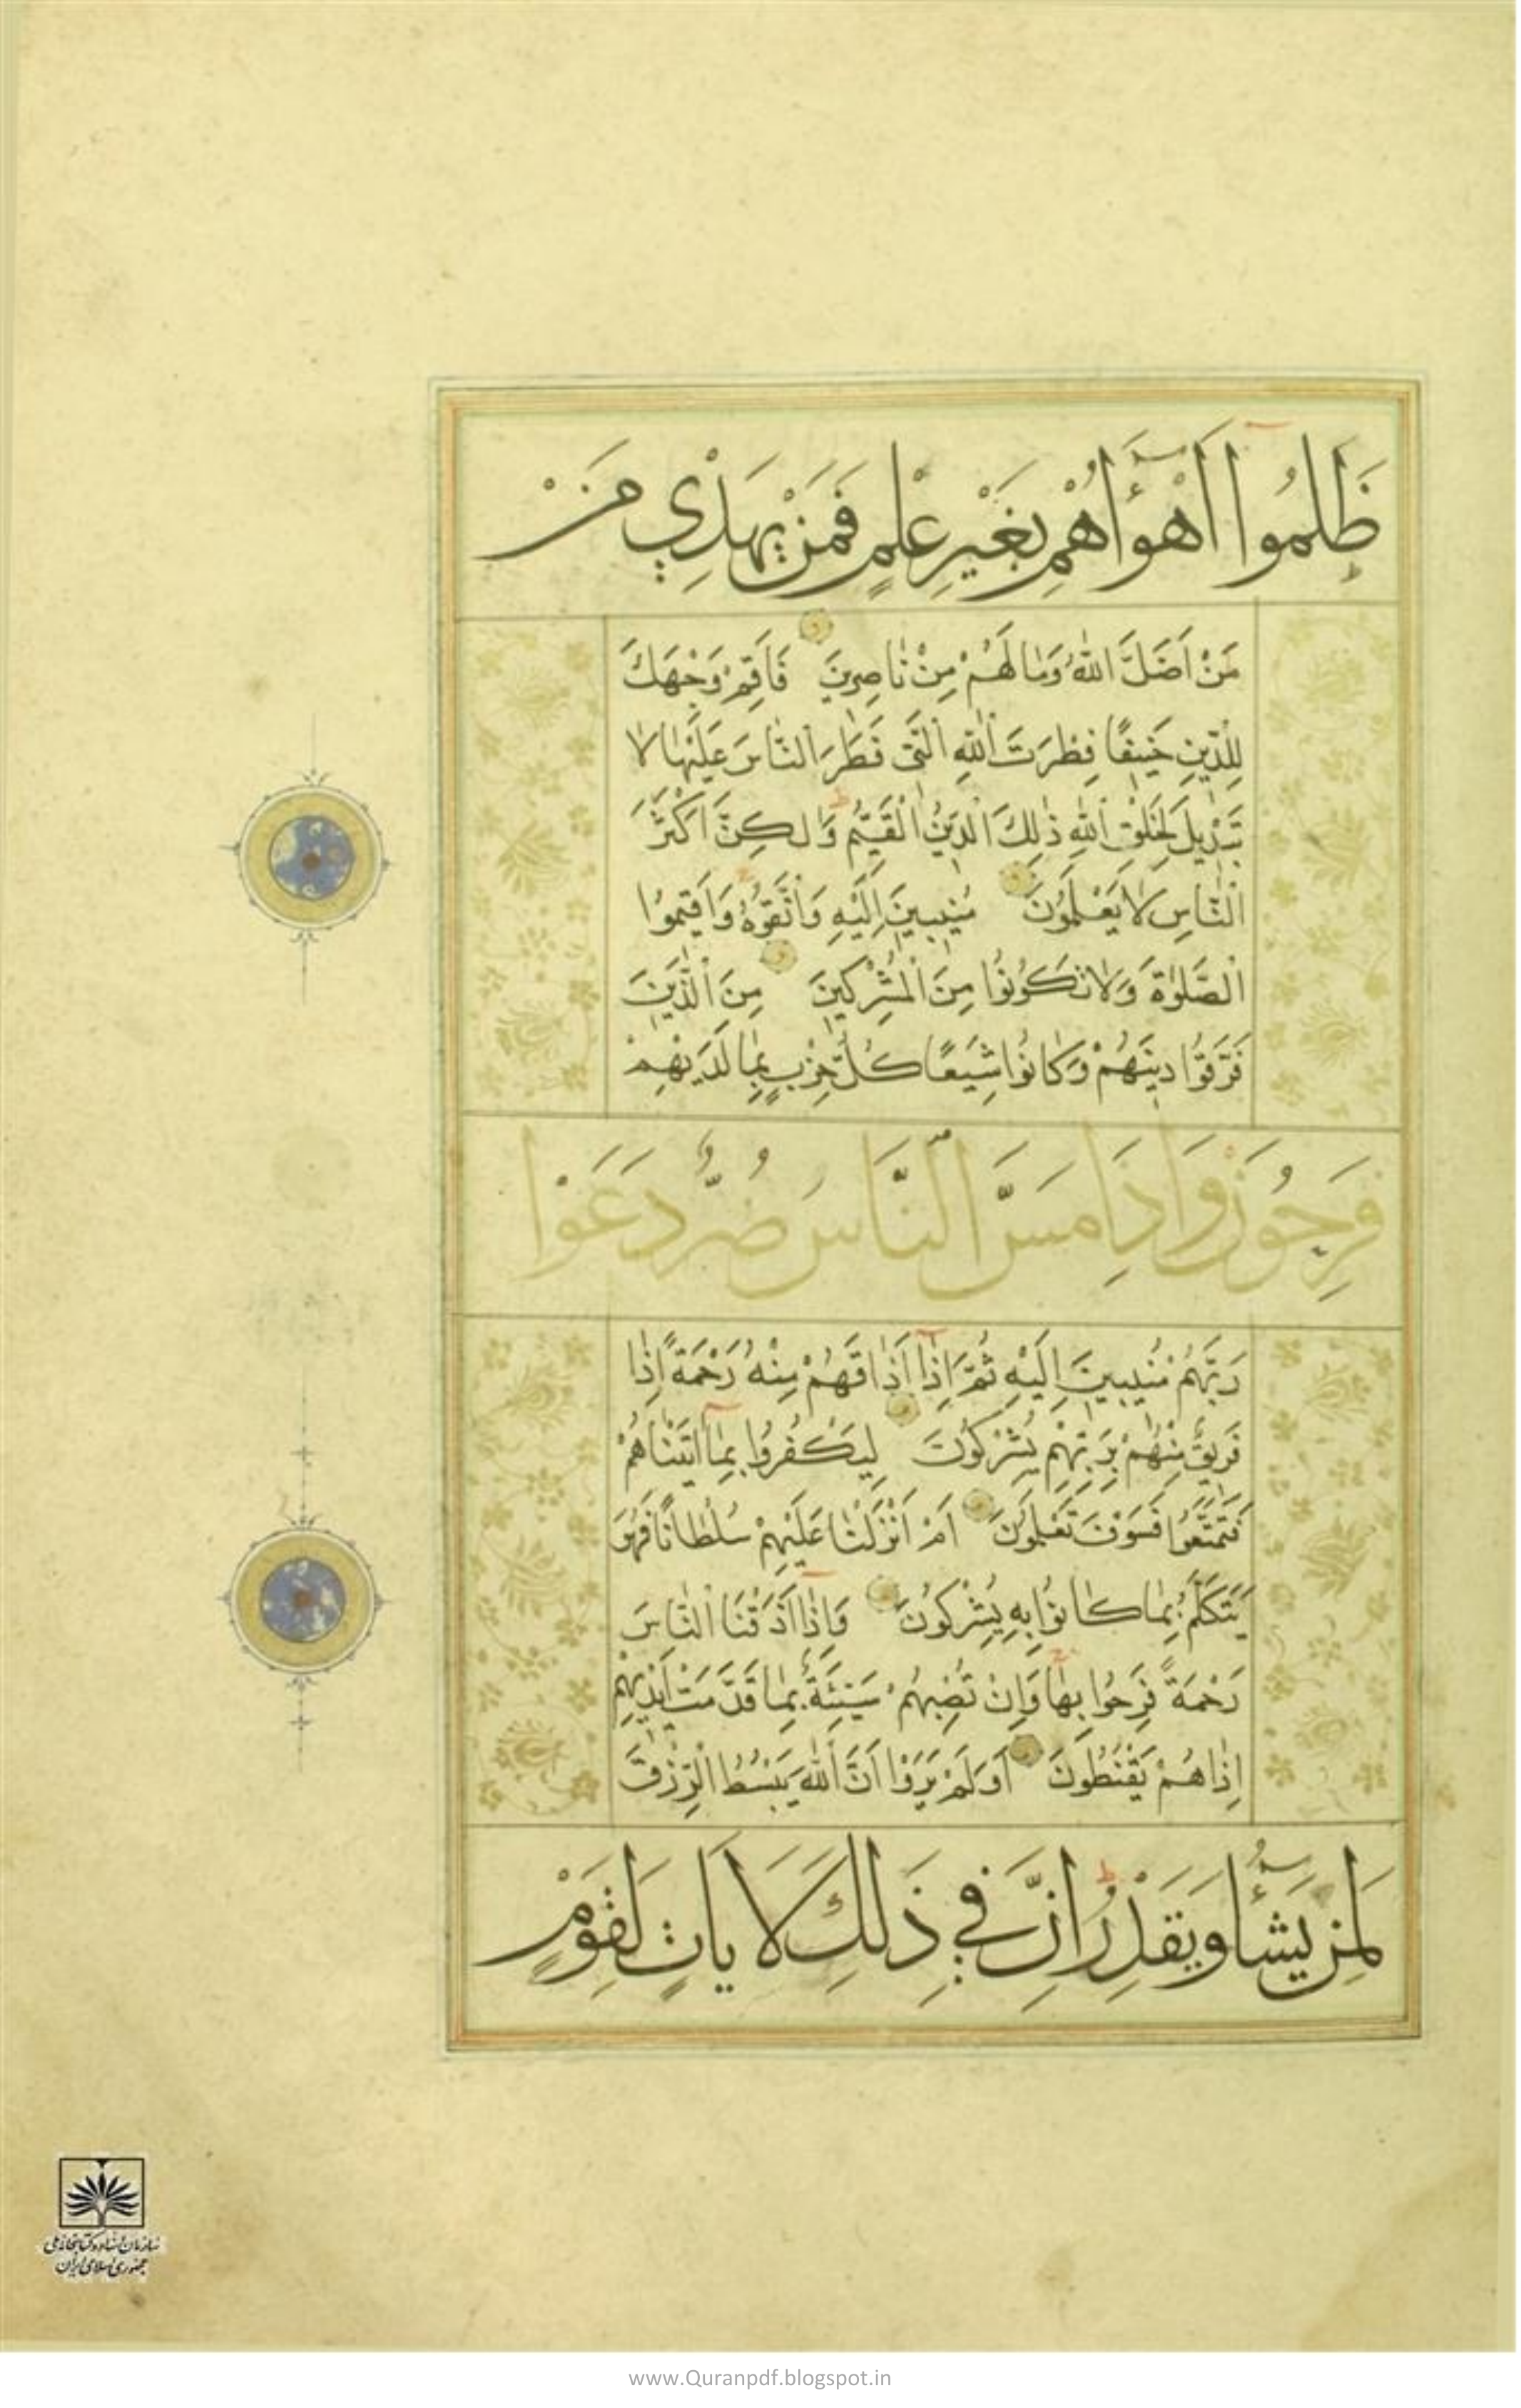 ظَلَمُوا أَهْوَاءَهُمْ بِغَيْرِ عِلْمٍ فَمَنْ يَهْدِي مَنْ
مَنْ اَضَلَّ اللّٰهُ وَمَا لَهُمْ مِنْ نَاصِرِينَ فَاَقِمْ وَجْهَكَ
لِلدِّينِ حَنِيفًا فِطْرَتَ اللّٰهِ الَّتِي فَطَرَ النَّاسَ عَلَيْهَا لَا
تَبْدِيلَ لِخَلْقِ اللّٰهِ ذٰلِكَ الدِّينُ الْقَيِّمُ وَلٰكِنَّ اَكْثَرَ
النَّاسِ لَا يَعْلَمُونَ مُنِيبِينَ اِلَيْهِ وَاتَّقُوهُ وَاَقِيمُوا
الصَّلٰوةَ وَلَا تَكُونُوا مِنَ الْمُشْرِكِينَ مِنَ الَّذِينَ
فَرَّقُوا دِينَهُمْ وَكَانُوا شِيَعًا كُلُّ حِزْبٍ بِمَا لَدَيْهِمْ
فَرِحُونَ وَاِذَا مَسَّ النَّاسَ ضُرٌّ دَعَوْا
رَبَّهُمْ مُنِيبِينَ اِلَيْهِ ثُمَّ اِذَا اَذَاقَهُمْ مِنْهُ رَحْمَةً اِذَا
فَرِيقٌ مِنْهُمْ بِرَبِّهِمْ يُشْرِكُونَ لِيَكْفُرُوا بِمَا اٰتَيْنَاهُمْ
فَتَمَتَّعُوا فَسَوْفَ تَعْلَمُونَ اَمْ اَنْزَلْنَا عَلَيْهِمْ سُلْطَانًا فَهُوَ
يَتَكَلَّمُ بِمَا كَانُوا بِهِ يُشْرِكُونَ وَاِذَا اَذَقْنَا النَّاسَ
رَحْمَةً فَرِحُوا بِهَا وَاِنْ تُصِبْهُمْ سَيِّئَةٌ بِمَا قَدَّمَتْ اَيْدِيهِمْ
اِذَا هُمْ يَقْنَطُونَ اَوَلَمْ يَرَوْا اَنَّ اللّٰهَ يَبْسُطُ الرِّزْقَ
لِمَنْ يَشَاءُ وَيَقْدِرُ اِنَّ فِي ذٰلِكَ لَاٰيَاتٍ لِقَوْمٍ
سازمان اسناد و کتابخانه ملی
جمهوری اسلامی ایران
www.Quranpdf.blogspot.in